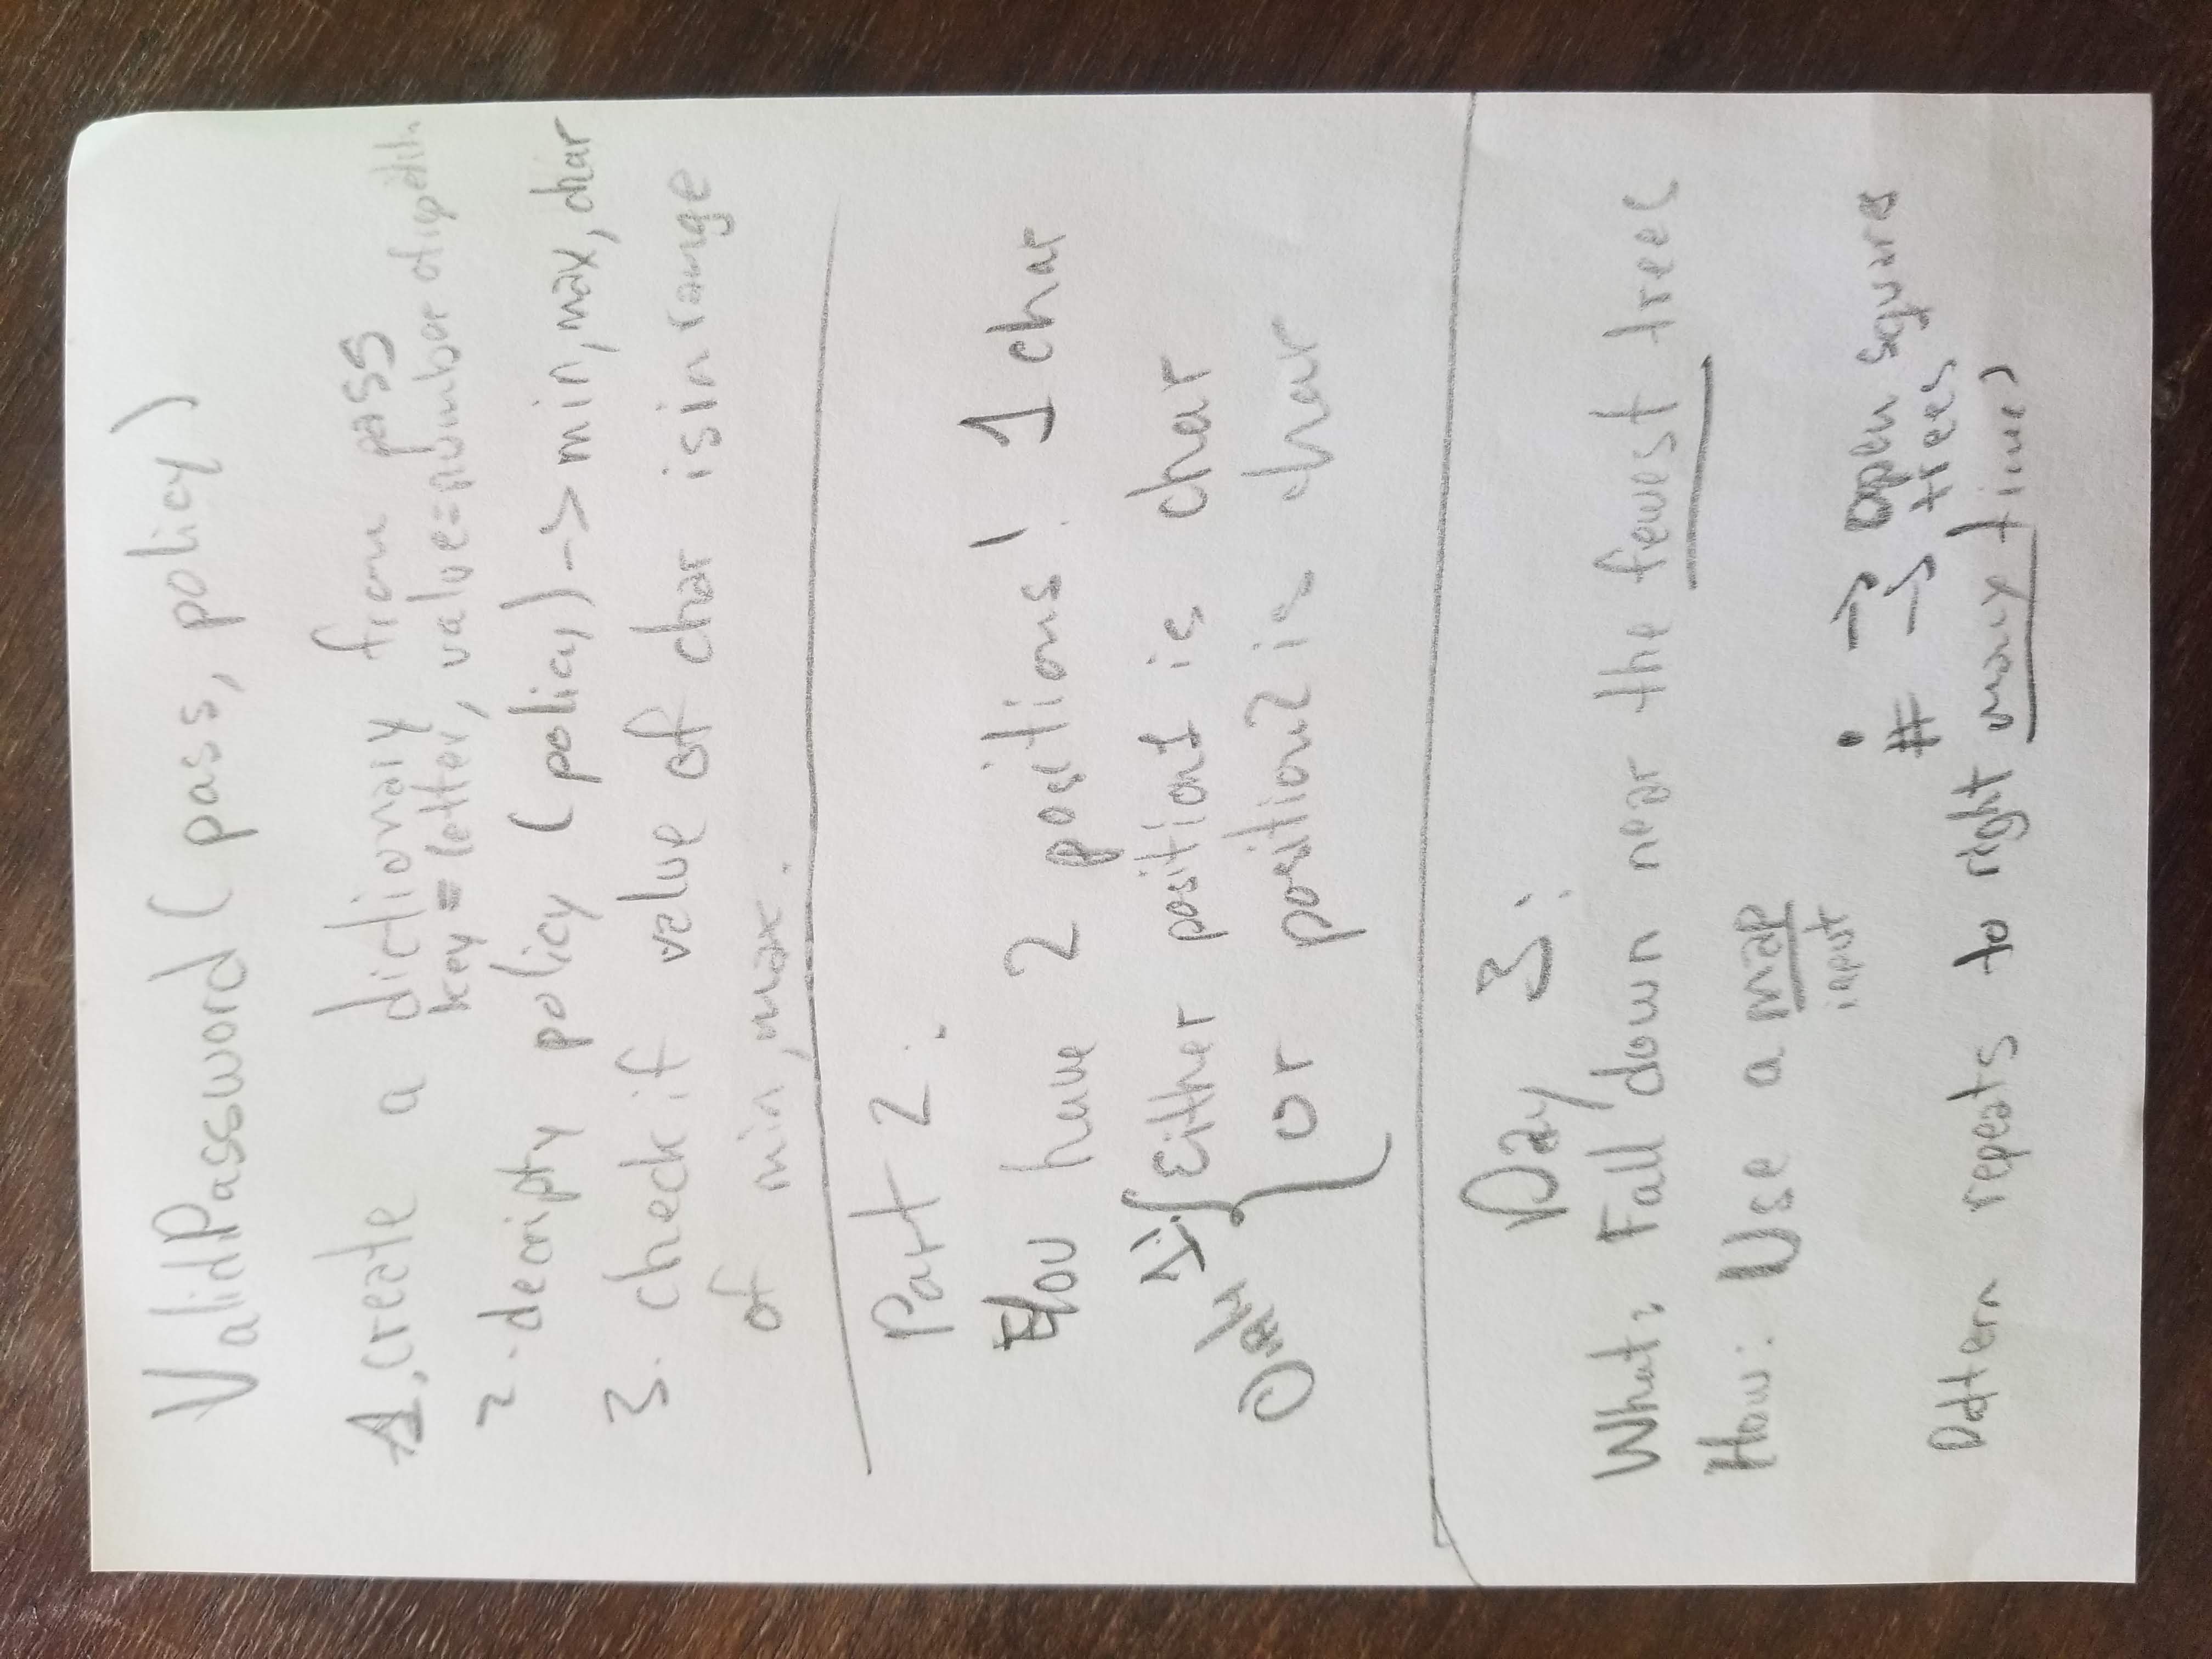 ValidPassword ( pass, policy )
1. create a dictionary from pass
key = letter, value = number of
2. decripty policy (policy) -> min, max, char
3. check if value of char is in range
of min, max.
Part 2:
You have 2 positions! 1 char
Only 1: { Either position1 is char
or position2 is char
Day 3:
What: Fall down near the fewest trees
How: Use a map
input
. -> open squares
# -> trees
Pattern repeats to right many times